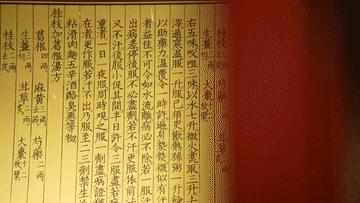 桂枝 芍藥三兩
生薑切三兩 大棗十二枚擘
右五味㕮咀三味以水七升微火煮取三升
滓適寒溫服一升服已須臾歠熱稀粥一升餘
以助藥力溫覆令一時許遍身漐漐微似有汗
者益佳不可令如水流離病必不除若一服汗
出病差停後服不必盡劑若不汗更服依前法
又不汗後服小促其間半日許令三服盡若病
重者一日一夜服周時觀之服一劑盡病證猶
在者更作服若汗不出乃服至二三劑禁生冷
粘滑肉麵五辛酒酪臭惡等物
桂枝加葛根湯方
葛根四兩 麻黃三兩去節 芍藥二兩
生薑三兩切 甘草二兩 大棗十二枚擘
桂枝二兩去皮